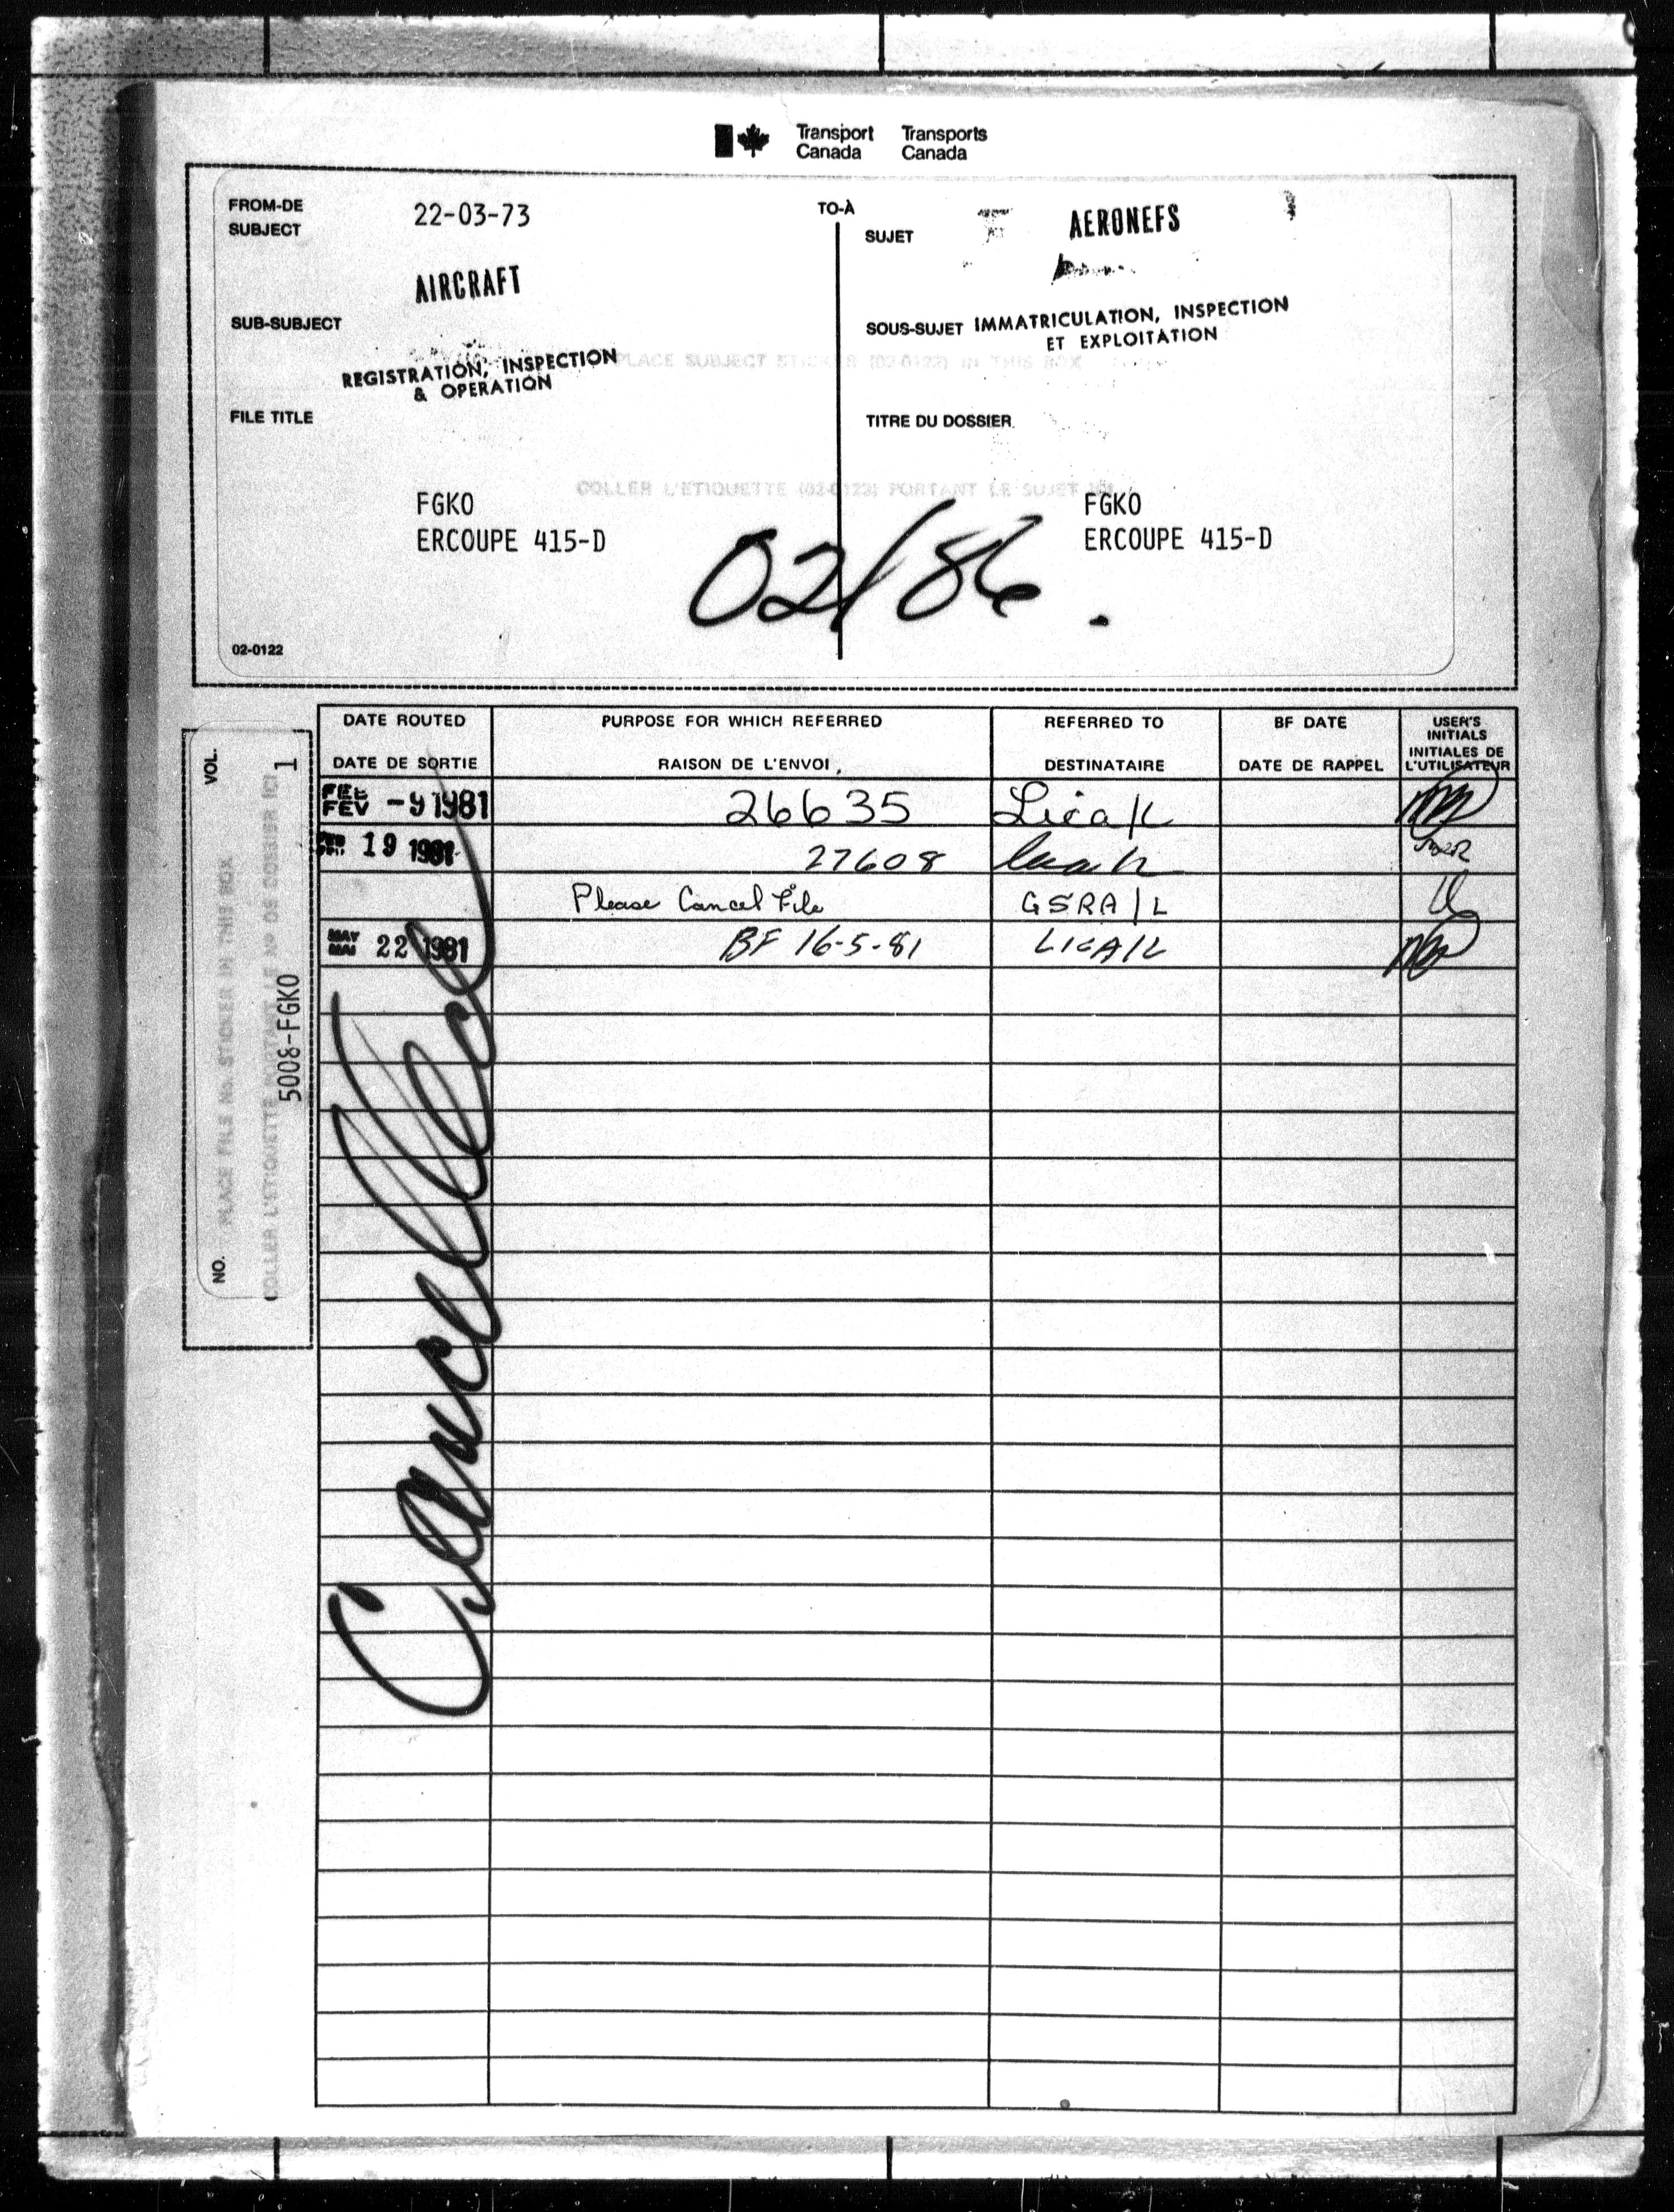 Transport Canada
Transports Canada
FROM-DE 22-03-73 TO-À
SUBJECT
AIRCRAFT
SUJET
AERONEFS
SUB-SUBJECT
REGISTRATION, INSPECTION
& OPERATION
SOUS-SUJET IMMATRICULATION, INSPECTION
ET EXPLOITATION
PLACE SUBJECT STICKER (02-0122) IN THIS BOX
FILE TITLE
TITRE DU DOSSIER
COLLER L'ETIQUETTE (02-0122) PORTANT LE SUJET ICI
FGKO
ERCOUPE 415-D
FGKO
ERCOUPE 415-D
02/86.
02-0122
VOL. 1
NO. 5008-FGKO
PLACE FILE No. STICKER IN THIS BOX
COLLER L'ETIQUETTE PORTANT LE Nº DE DOSSIER ICI
DATE ROUTED PURPOSE FOR WHICH REFERRED REFERRED TO BF DATE USER'S INITIALS
DATE DE SORTIE RAISON DE L'ENVOI DESTINATAIRE DATE DE RAPPEL INITIALES DE L'UTILISATEUR
FEB FEV -9 1981 26635
19 1981 27608
Please Cancel File GSRA/L
MAY MAI 22 1981 BF 16-5-81 LICA/L
Cancelled